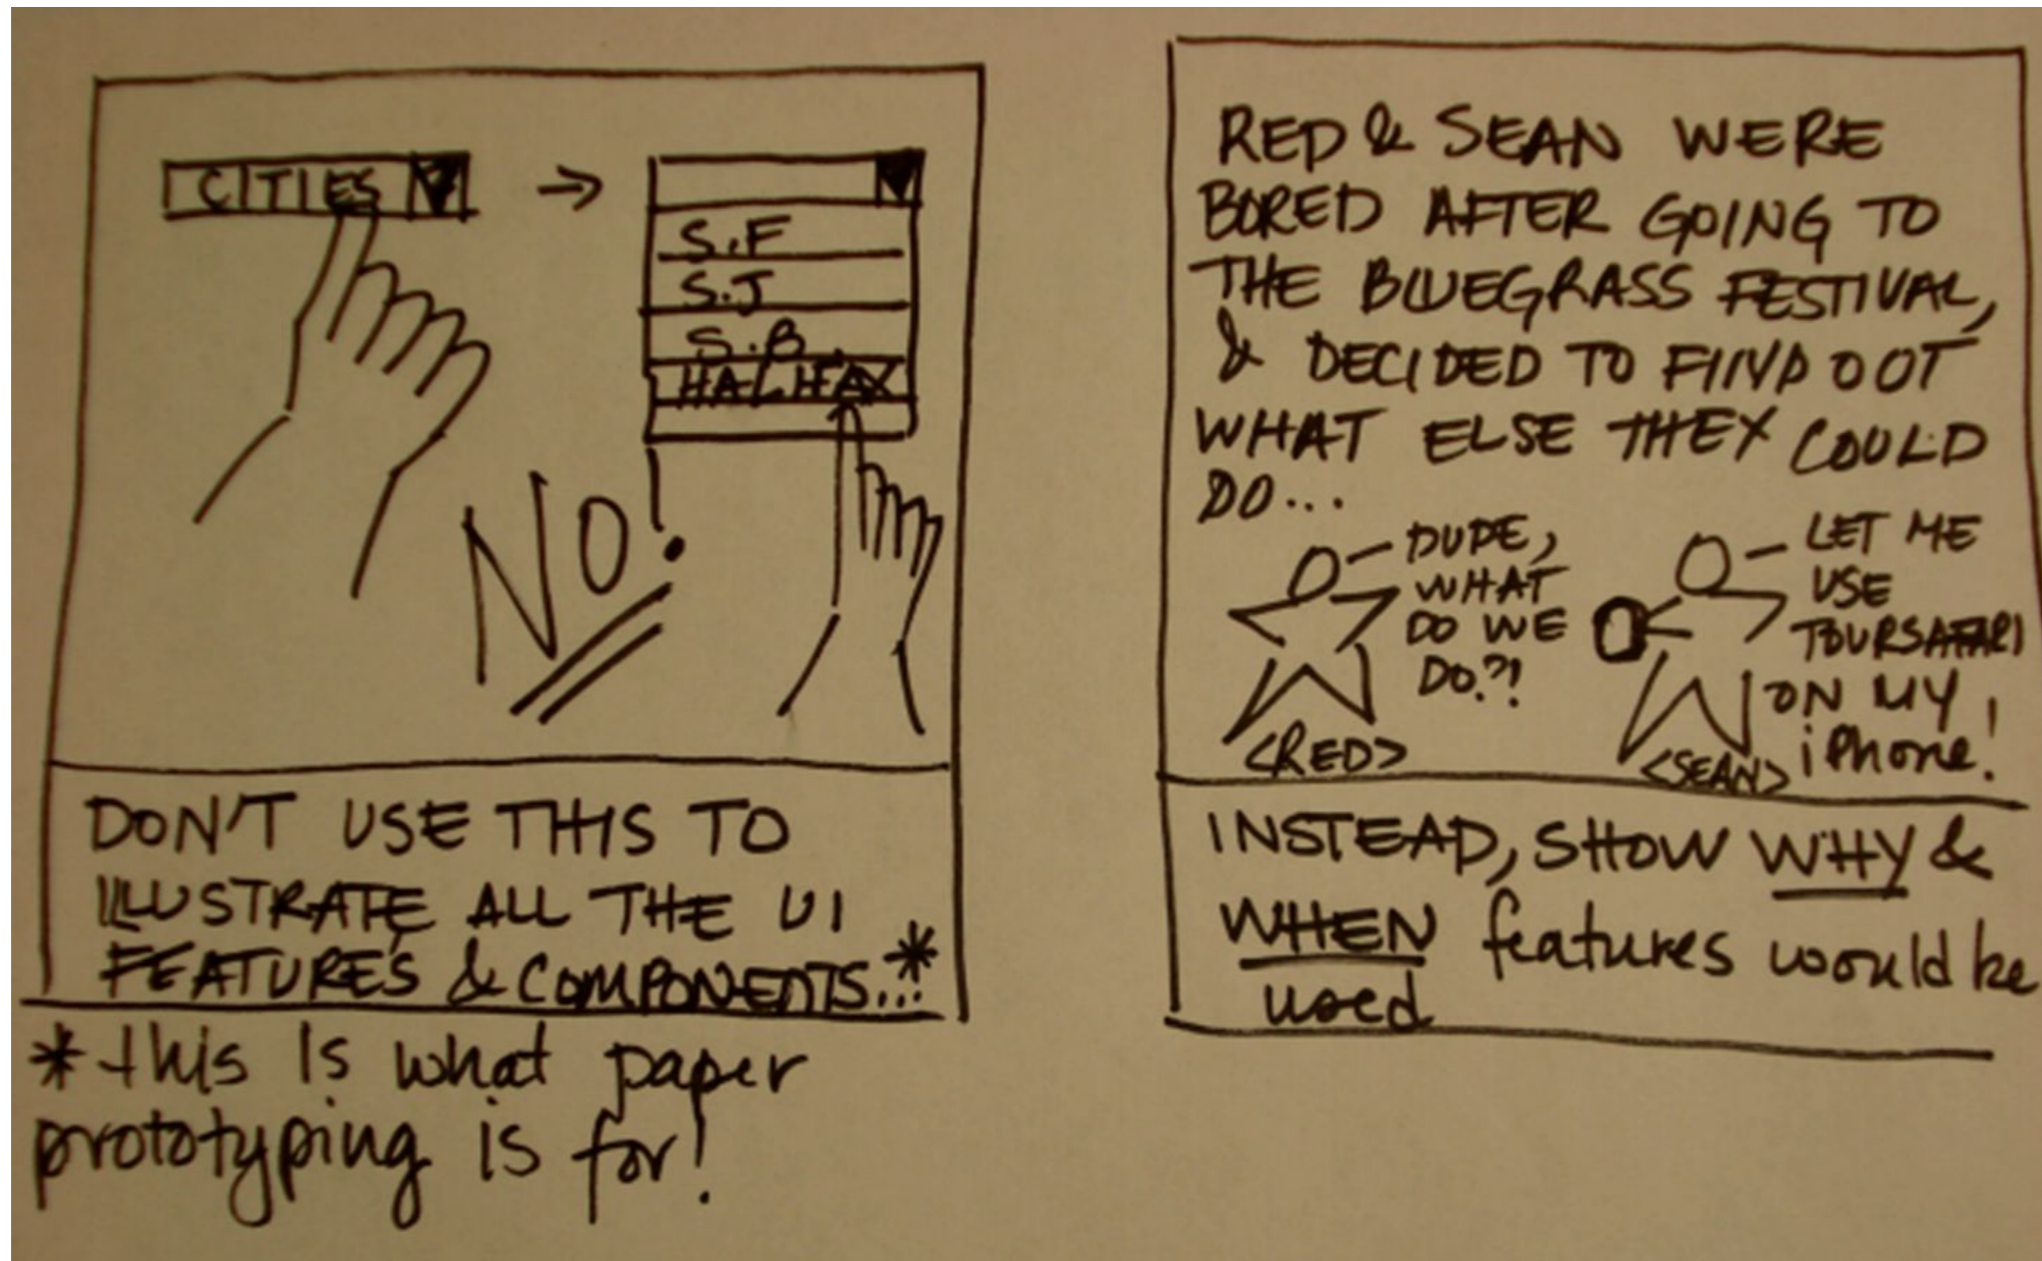 CITIES
S.F
S.J
S.B
HALIFAX
NO!
DON'T USE THIS TO
ILLUSTRATE ALL THE UI
FEATURES & COMPONENTS...*
*this is what paper
prototyping is for!
RED & SEAN WERE
BORED AFTER GOING TO
THE BLUEGRASS FESTIVAL,
& DECIDED TO FIND OUT
WHAT ELSE THEY COULD
DO...
DUDE,
WHAT
DO WE
DO?!
<RED>
LET ME
USE
TOURSAFARI
ON MY
iPhone!
<SEAN>
INSTEAD, SHOW WHY &
WHEN features would be
used